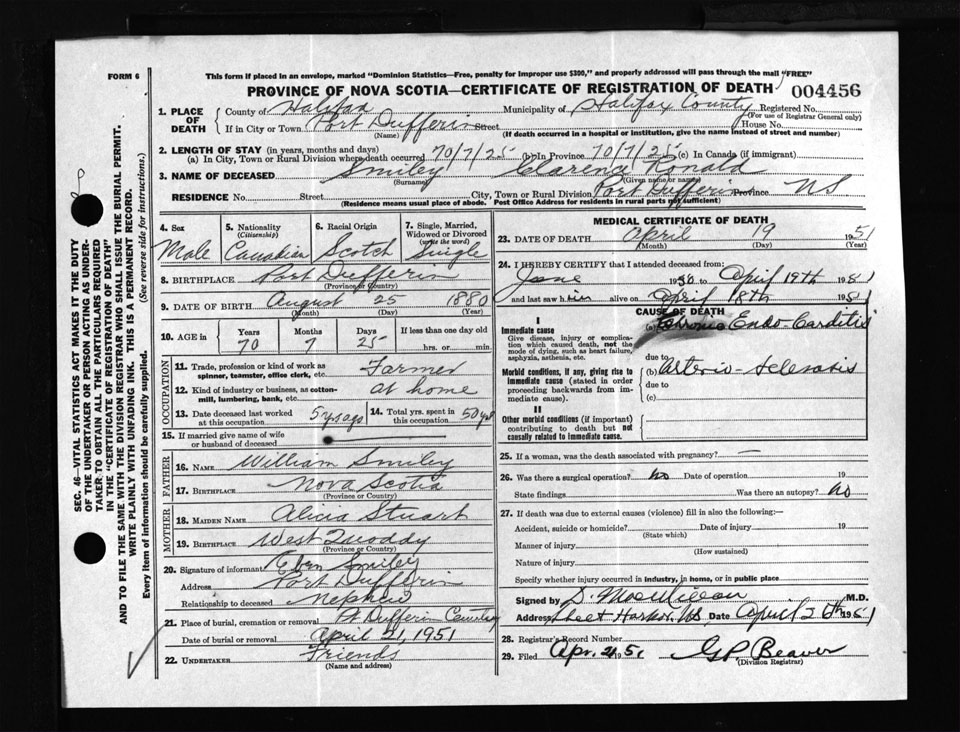 FORM 6
This form if placed in an envelope, marked "Dominion Statistics—Free, penalty for improper use $300," and properly addressed will pass through the mail "FREE"
PROVINCE OF NOVA SCOTIA—CERTIFICATE OF REGISTRATION OF DEATH
004456
1. PLACE OF DEATH
County of Halifax Municipality of Halifax County Registered No.
(For use of Registrar General only)
If in City or Town Port Dufferin Street House No.
(Name) (If death occurred in a hospital or institution, give the name instead of street and number)
2. LENGTH OF STAY (in years, months and days)
(a) In City, Town or Rural Division where death occurred 70/7/25 (b) In Province 70/7/25 (c) In Canada (if immigrant)
3. NAME OF DECEASED Smiley Clarence Ronald
(Surname) (Given name or names)
RESIDENCE No. Street City, Town or Rural Division Port Dufferin Province NS
(Residence means usual place of abode. Post Office Address for residents in rural parts not sufficient)
4. Sex Male
5. Nationality (Citizenship) Canadian
6. Racial Origin Scotch
7. Single, Married, Widowed or Divorced (write the word) Single
8. BIRTHPLACE Port Dufferin
(Province or Country)
9. DATE OF BIRTH August 25 1880
(Month) (Day) (Year)
10. AGE in Years Months Days If less than one day old
70 7 25 hrs. or min.
OCCUPATION
11. Trade, profession or kind of work as spinner, teamster, office clerk, etc. Farmer
12. Kind of industry or business, as cotton-mill, lumbering, bank, etc. at home
13. Date deceased last worked at this occupation 5 yrs ago
14. Total yrs. spent in this occupation 50 yrs
15. If married give name of wife or husband of deceased
FATHER
16. NAME William Smiley
17. BIRTHPLACE Nova Scotia
(Province or Country)
MOTHER
18. MAIDEN NAME Alicia Stuart
19. BIRTHPLACE West Quoddy
(Province or Country)
20. Signature of informant Eben Smiley
Address Port Dufferin
Relationship to deceased Nephew
21. Place of burial, cremation or removal Pt Dufferin Cemetery
Date of burial or removal April 21, 1951
22. UNDERTAKER Friends
(Name and address)
MEDICAL CERTIFICATE OF DEATH
23. DATE OF DEATH April 19 1951
(Month) (Day) (Year)
24. I HEREBY CERTIFY that I attended deceased from:
June 1950 to April 19th 1951
and last saw him alive on April 18th 1951
CAUSE OF DEATH
I
Immediate cause
Give disease, injury or complication which caused death, not the mode of dying, such as heart failure, asphyxia, asthenia, etc.
(a) Chronic Endo-Carditis
due to
Morbid conditions, if any, giving rise to immediate cause (stated in order proceeding backwards from immediate cause).
(b) Arterio-sclerosis
due to
(c)
II
Other morbid conditions (if important) contributing to death but not causally related to immediate cause.
25. If a woman, was the death associated with pregnancy? —
26. Was there a surgical operation? no Date of operation 19
State findings Was there an autopsy? no
27. If death was due to external causes (violence) fill in also the following:—
Accident, suicide or homicide? Date of injury 19
(State which)
Manner of injury
(How sustained)
Nature of injury
Specify whether injury occurred in industry, in home, or in public place
Signed by D. MacMillan M.D.
Address Sheet Harbor, NS Date April 20th 1951
28. Registrar's Record Number
29. Filed Apr. 21 1951 G P Beaver
(Division Registrar)
SEC. 46—VITAL STATISTICS ACT MAKES IT THE DUTY
OF THE UNDERTAKER OR PERSON ACTING AS UNDER-
TAKER: TO OBTAIN ALL THE PARTICULARS REQUIRED
IN THE "CERTIFICATE OF REGISTRATION OF DEATH"
AND TO FILE THE SAME WITH THE DIVISION REGISTRAR WHO SHALL ISSUE THE BURIAL PERMIT.
WRITE PLAINLY WITH UNFADING INK. THIS IS A PERMANENT RECORD.
Every item of information should be carefully supplied. (See reverse side for instructions.)